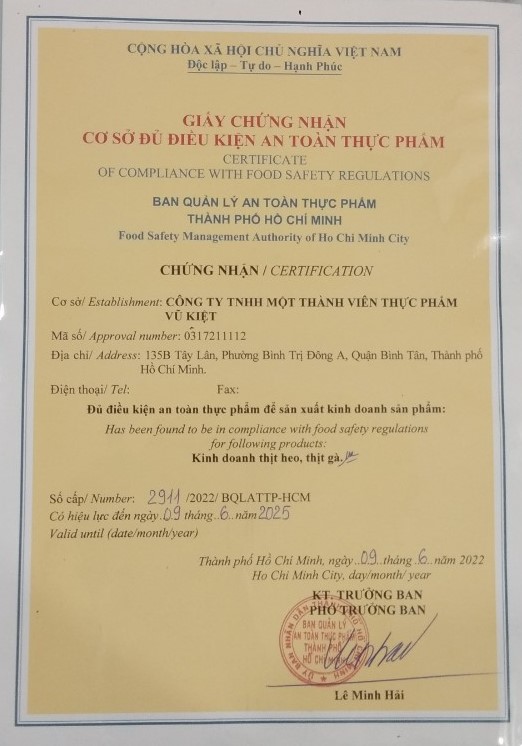 CỘNG HÒA XÃ HỘI CHỦ NGHĨA VIỆT NAM
Độc lập – Tự do – Hạnh Phúc
GIẤY CHỨNG NHẬN
CƠ SỞ ĐỦ ĐIỀU KIỆN AN TOÀN THỰC PHẨM
CERTIFICATE
OF COMPLIANCE WITH FOOD SAFETY REGULATIONS
BAN QUẢN LÝ AN TOÀN THỰC PHẨM
THÀNH PHỐ HỒ CHÍ MINH
Food Safety Management Authority of Ho Chi Minh City
CHỨNG NHẬN / CERTIFICATION
Cơ sở/ Establishment: CÔNG TY TNHH MỘT THÀNH VIÊN THỰC PHẨM
VŨ KIỆT
Mã số/ Approval number: 0317211112
Địa chỉ/ Address: 135B Tây Lân, Phường Bình Trị Đông A, Quận Bình Tân, Thành phố
Hồ Chí Minh.
Điện thoại/ Tel: Fax:
Đủ điều kiện an toàn thực phẩm để sản xuất kinh doanh sản phẩm:
Has been found to be in compliance with food safety regulations
for following products:
Kinh doanh thịt heo, thịt gà.
Số cấp/ Number: 2911 /2022/ BQLATTP-HCM
Có hiệu lực đến ngày 09 tháng 6 năm 2025
Valid until (date/month/year)
Thành phố Hồ Chí Minh, ngày 09 tháng 6 năm 2022
Ho Chi Minh City, day/month/ year
KT. TRƯỞNG BAN
PHÓ TRƯỞNG BAN
ỦY BAN NHÂN DÂN THÀNH PHỐ HỒ CHÍ MINH
BAN QUẢN LÝ
AN TOÀN THỰC PHẨM
THÀNH PHỐ
HỒ CHÍ MINH
Lê Minh Hải